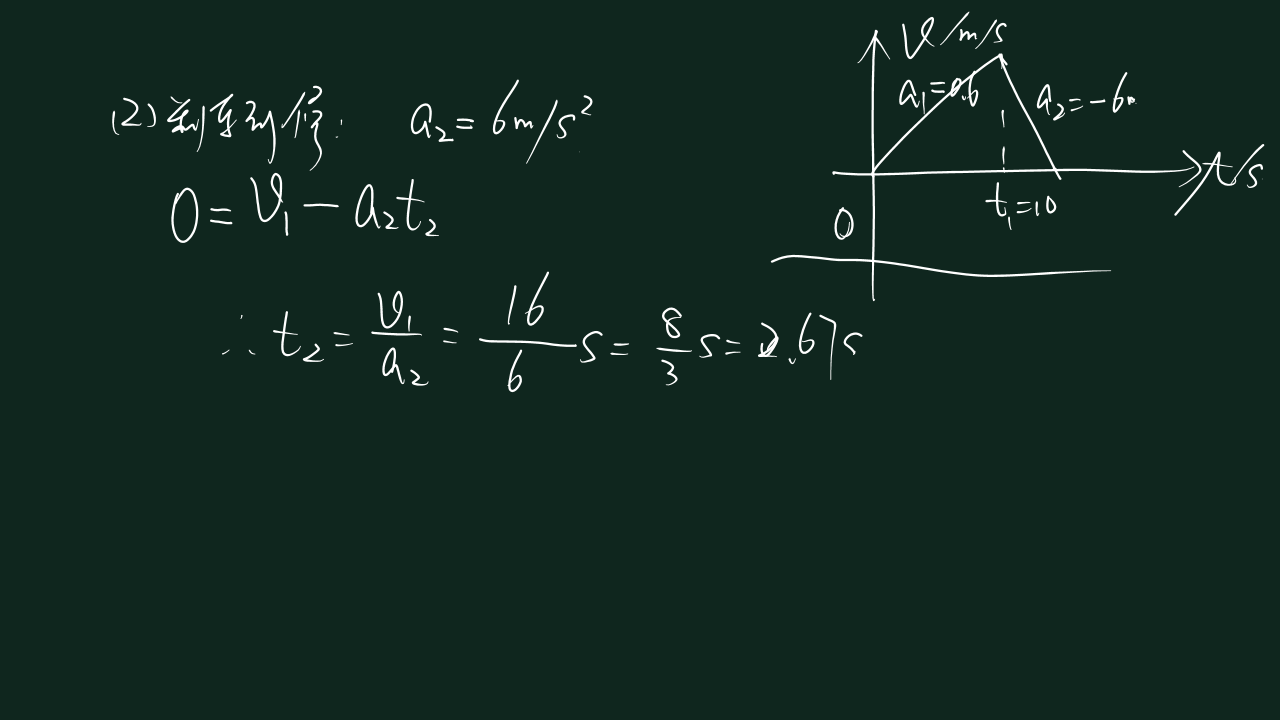 (2) 刹车到停: a₂ = 6m/s²
0 = v₁ - a₂t₂
∴ t₂ = v₁/a₂ = 16/6 s = 8/3 s = 2.67s
v/m/s
a₁=0.6
a₂=-6m
t/s
t₁=10
0